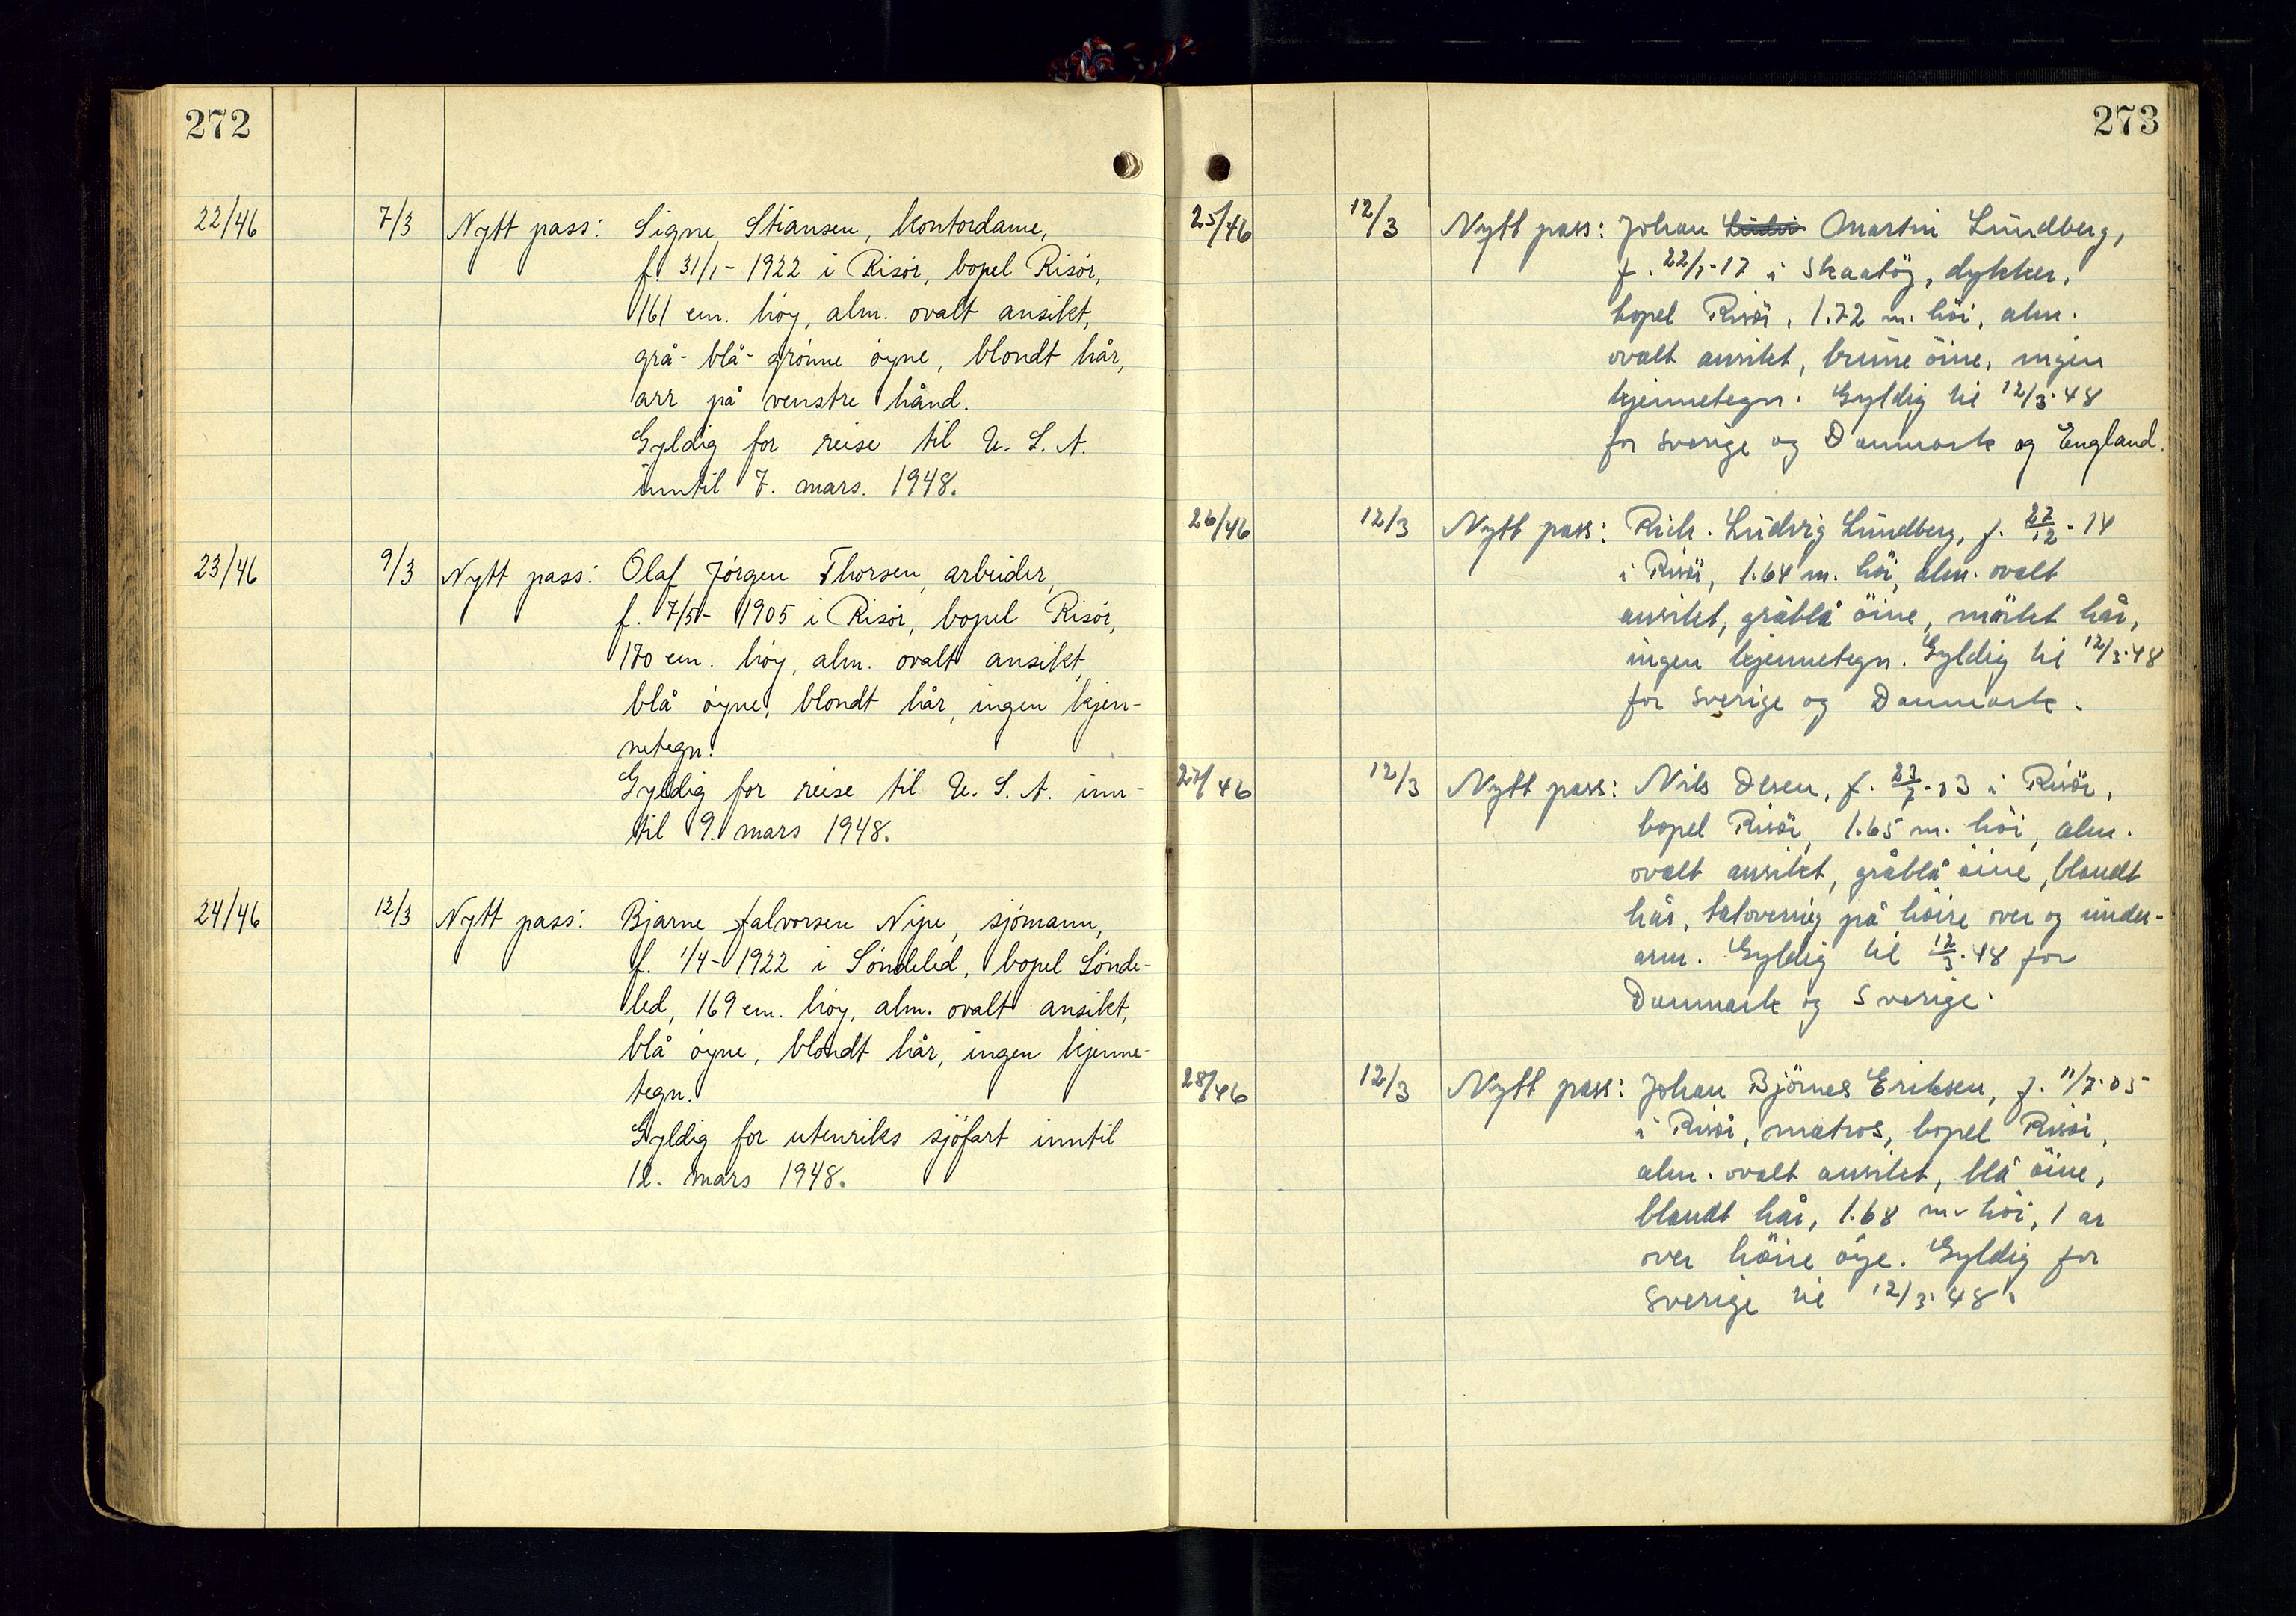 272
22/46 7/3 Nytt pass: Signe Stiansen, kontordame,
f. 31/1- 1922 i Risør, bopel Risør,
161 cm. høy, alm. ovalt ansikt,
grå-blå-grønne øyne, blondt hår,
arr på venstre hånd.
Gyldig for reise til U.S.A.
inntil 7. mars. 1948.
23/46 9/3 Nytt pass: Olaf Jørgen Thorsen, arbeider,
f. 7/5- 1905 i Risør, bopel Risør,
170 cm. høy, alm. ovalt ansikt,
blå øyne, blondt hår, ingen kjen-
netegn.
Gyldig for reise til U.S.A. inn-
til 9. mars 1948.
24/46 12/3 Nytt pass: Bjarne Halvorsen Nipe, sjømann,
f. 1/4- 1922 i Søndeled, bopel Sønde-
led, 169 cm. høy, alm. ovalt ansikt,
blå øyne, blondt hår, ingen kjenne-
tegn.
Gyldig for utenriks sjøfart inntil
12. mars 1948.
273
25/46 12/3 Nytt pass: Johan Martin Lundberg,
f. 22/1-17 i Skaatöy, dykker,
bopel Risör, 1.72 m. höi, alm.
ovalt ansikt, brune öine, ingen
kjennetegn. Gyldig til 12/3.48
for Sverige og Danmark og England.
26/46 12/3 Nytt pass: Rich. Ludvig Lundberg, f. 27/12.14
i Risör, 1.64 m. höi, alm. ovalt
ansikt, gråblå öine, mörkt hår,
ingen kjennetegn. Gyldig til 12/3.48
for Sverige og Danmark.
27/46 12/3 Nytt pass: Nils Olsen, f. 23/7.03 i Risör,
bopel Risör, 1.65 m. höi, alm.
ovalt ansikt, gråblå öine, blondt
hår, tatovering på höire over og under-
arm. Gyldig til 12/3.48 for
Danmark og Sverige.
28/46 12/3 Nytt pass: Johan Björnes Eriksen, f. 11/7.05
i Risör, matros, bopel Risör,
alm. ovalt ansikt, blå öine,
blondt hår, 1.68 m. höi, 1 ar
over höire öye. Gyldig for
Sverige til 12/3.48.